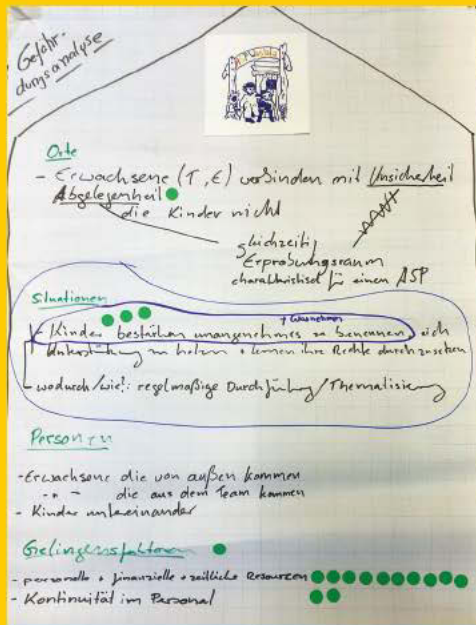 Gefähr-
dungsanalyse
Orte
- Erwachsene (T, E) verbinden mit Unsicherheit
Abgelegenheit
die Kinder nicht
gleichzeitig
Erprobungsraum
charakteristisch für einen ASP
Situationen
+ wahrnehmen
- Kinder bestärken unangenehmes zu benennen, sich
Unterstützung zu holen + lernen ihre Rechte durchzusetzen
- wodurch/wie?: regelmäßige Durchführung/Thematisierung
Personen
- Erwachsene die von außen kommen
- " - die aus dem Team kommen
- Kinder untereinander
Gelingensfaktoren
- personelle + finanzielle + zeitliche Resourcen
- Kontinuität im Personal